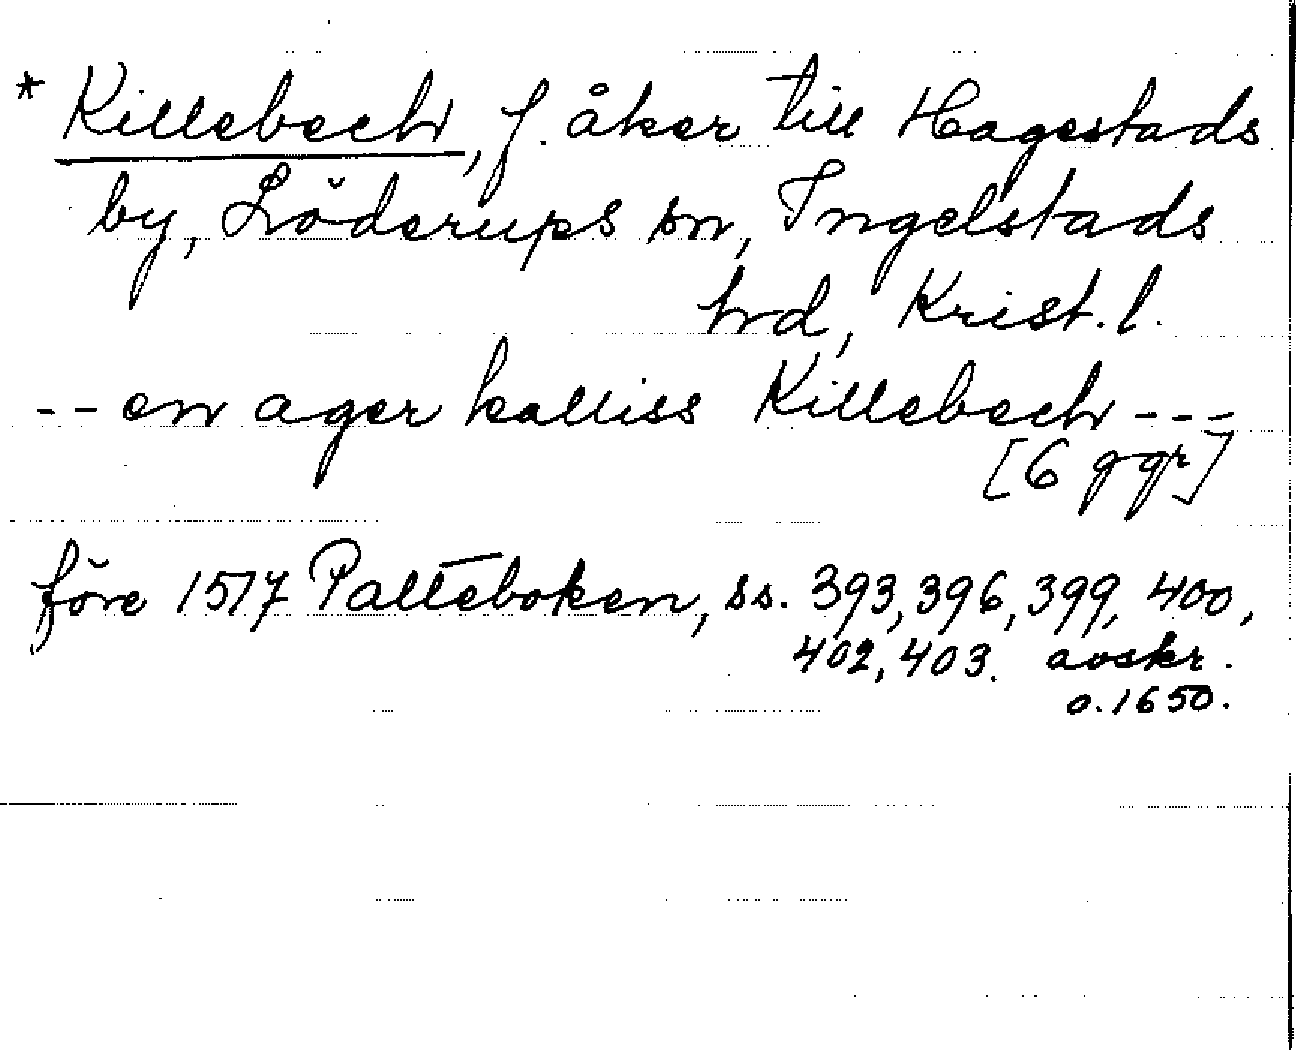 * Killebech, f. åker till Hagestads
by, Löderups sn, Ingelstads
hrd, Krist. l.
-- en ager kalliss Killebech ---
[6 ggr]
före 1517 Palteboken, ss. 393, 396, 399, 400,
402, 403. avskr.
o. 1650.